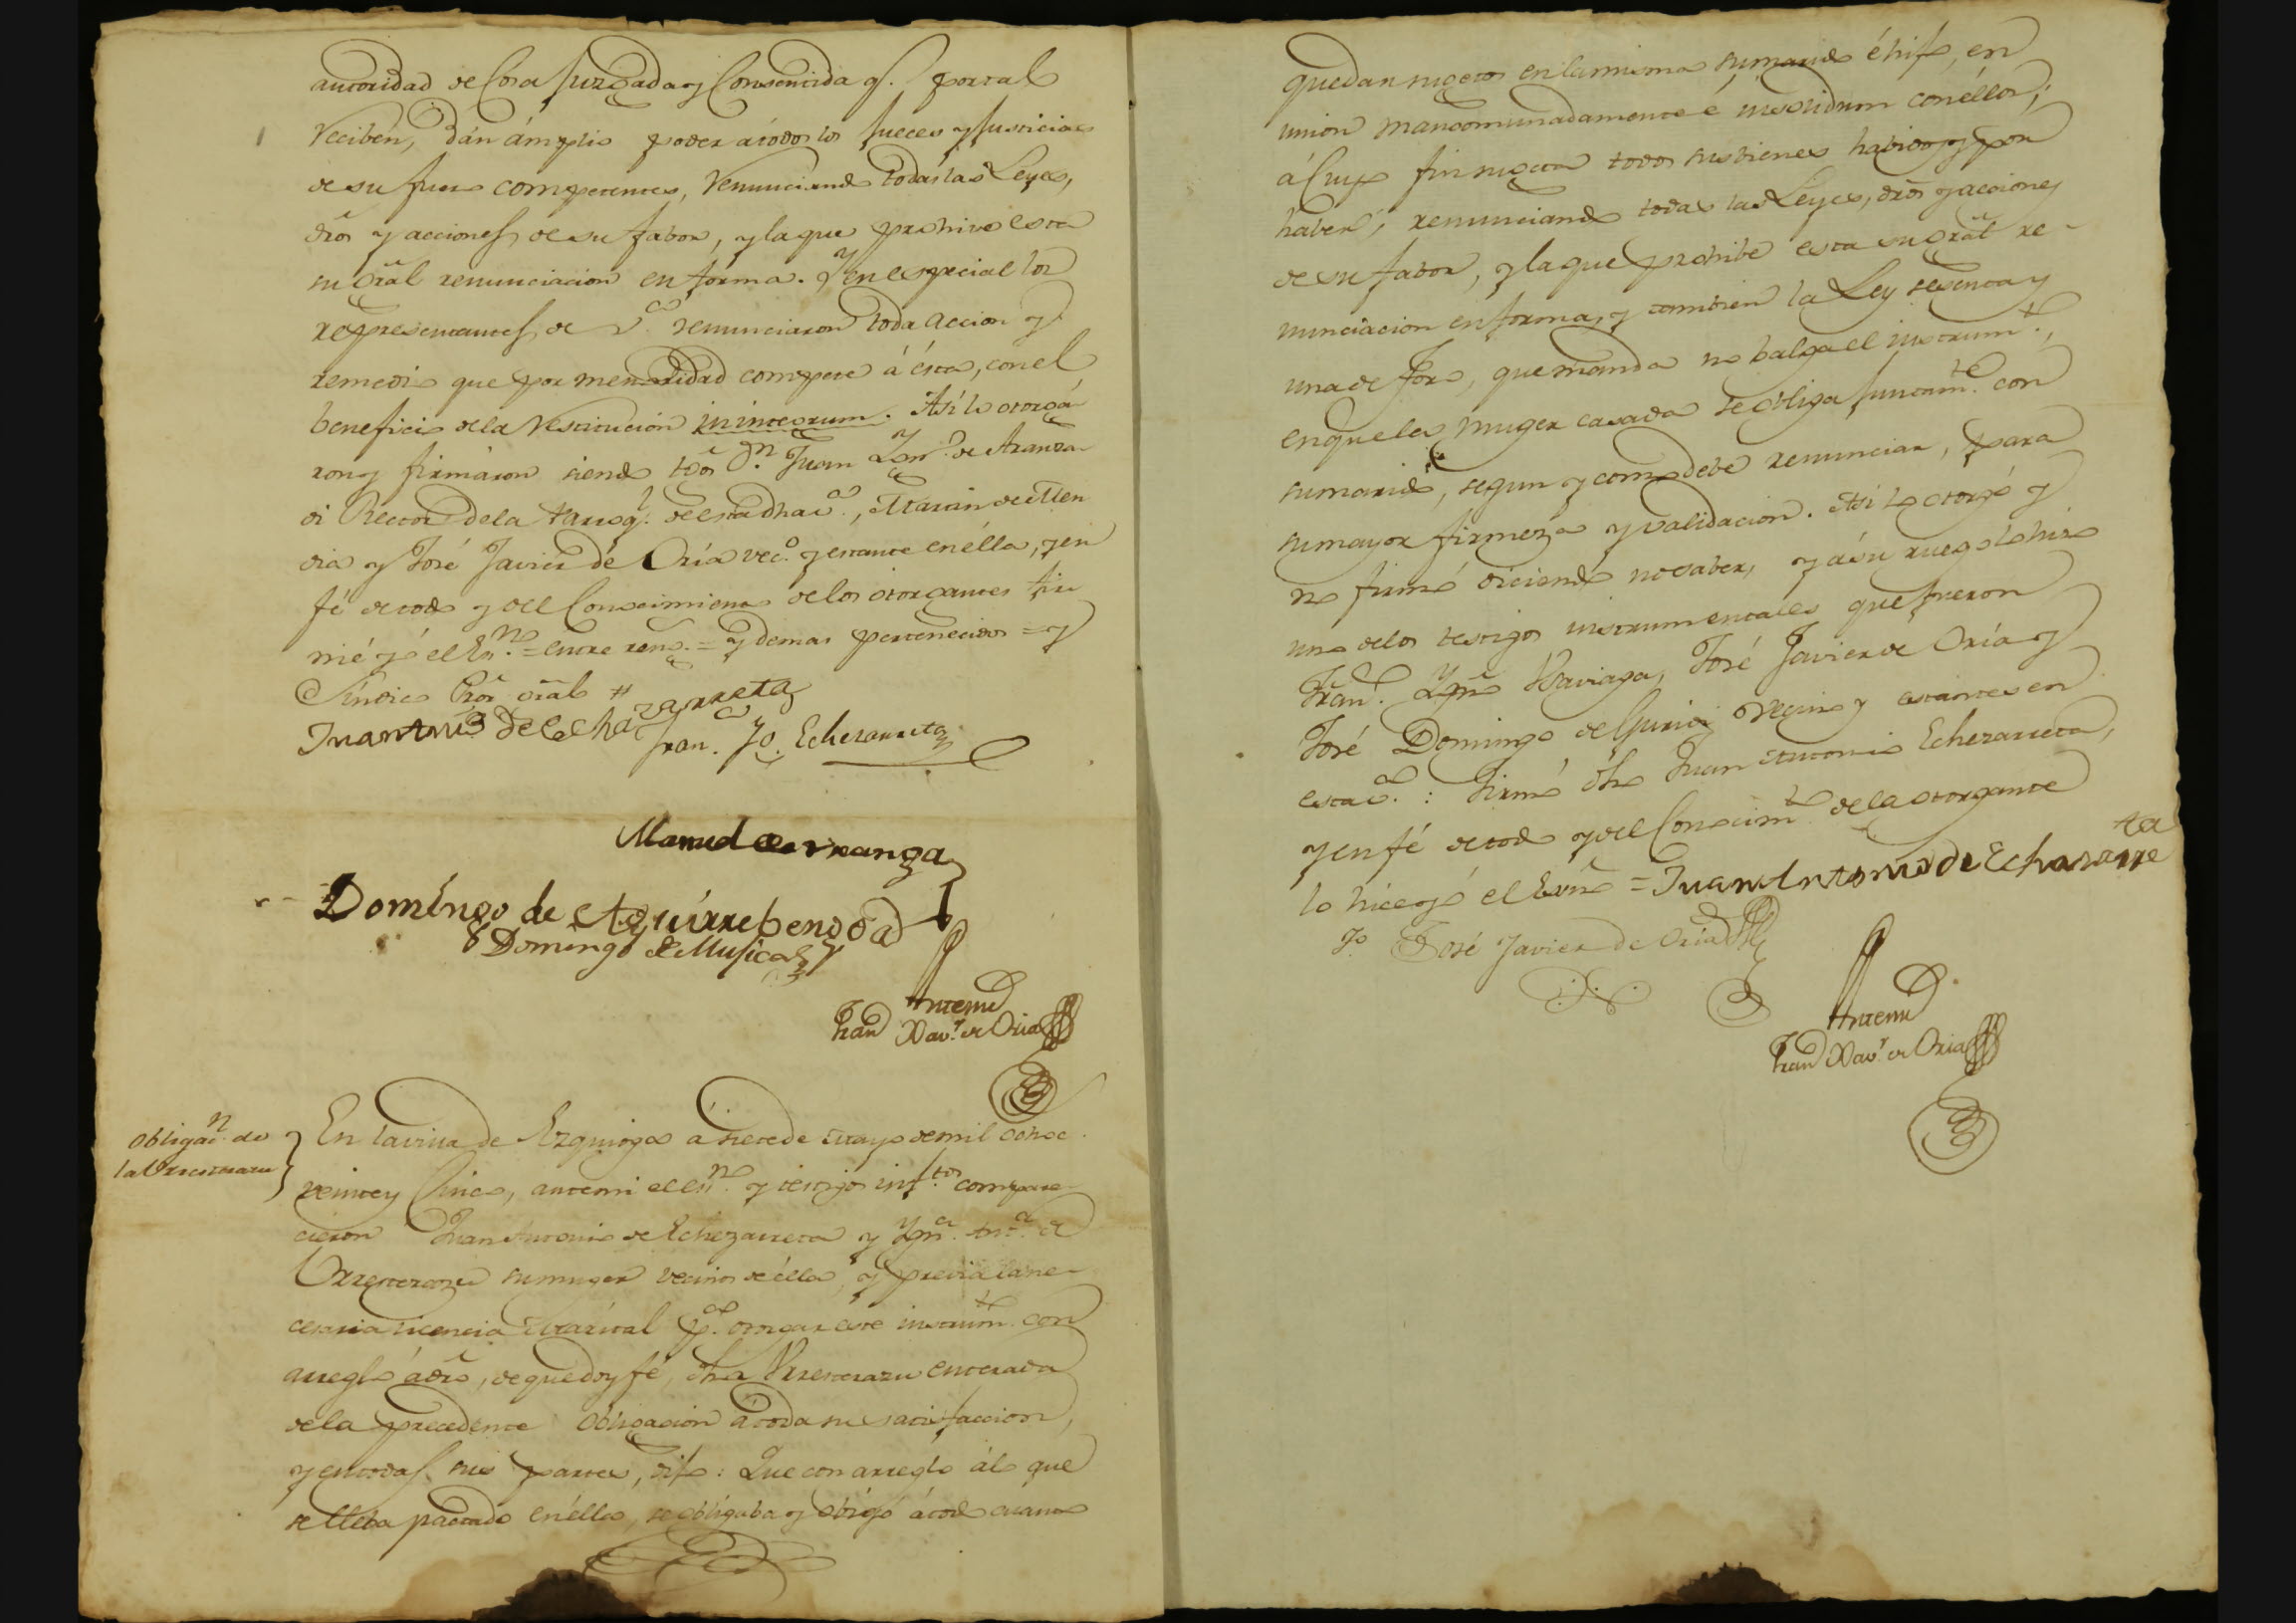 autoridad de Cosa Juzgada y Consentida q.e por tal
reciben, dán ámplio poder á todos los Jueces y Justicias
de su fuero competentes, renunciando todas las Leyes,
dr̃os y acciones de su fabor, y la que prohive esta
su gr̃al renunciacion en forma. Y en especial los
representantes de v.a renunciaron toda accion y
remedio que por menoridad compete á ésta, con el
beneficio de la restitucion in integrum. Así lo otorgá
ron y firmáron siendo tg̃os D.n Juan Ygn.o de Aranza
di Rector de la Parroq.l de esta dha v.a, Martin de Men
dia y José Javier de Oría vec.o y estante en élla, y en
fé de todo y del Conocimiento de los otorgantes fir
mé yó el Es.no = entre reng. = y demas pertenecidos = y
Síndico Pr̃or gr̃al #
Juan Antonio De Echazarreta
Fran.co Jo. Echezarreta
Manuel de Aranga
Domingo de Aguirrebengoa
Domingo de Mugica
Antemi
Fran.co Xav.r de Oria
Obligac.n de
la Urrestarazu
En la villa de Ezquioga á siete de Mayo de mil ochoc.
veinte y Cinco, ante mi el es.no y testigos inf.tos compare
cieron Juan Antonio de Echezarreta y Ygn.a Ant.a de
Urrestarazu su muger vecinos de élla, y previa la ne
cesaria licencia Marital p.a otorgar este instrum.to con
arreglo á dr̃o, de que doy fé, dha Urrestarazu enterada
de la precedente Obligacion á toda su satisfaccion,
y en todas sus partes, dijo: Que con arreglo á lo que
se lleba pactado en éllo, se obligaba y obligó á todo cuanto
quedan sugetos en la misma su marido é hijo, en
union mancomunadamente é insolidum con éllos;
á Cuyo fin sugeta todos sus bienes habidos y por
haber, renunciando todas las Leyes, dr̃os y acciones
de su fabor, y la que prohibe esta su gr̃al re-
nunciacion en forma, y tambien la Ley sesenta y
una de Toro, que manda no balga el instrum.to,
en que la muger casada se obliga juntam.te con
su marido, segun y como debe renunciar, para
su mayor firmeza y validacion. Así lo otorgó y
no firmó diciendo no saber, y á su ruego lo hizo
uno de los testigos instrumentales que fueron
Fran.co Ygn.o José Javier de Oría y
José Domingo de vecino y estantes en
esta v.a: firmó dho Juan Antonio Echezarreta,
y en fé de todo y del Conocim.to de la otorgante
lo hice yó el Esc̃no = Juan Antonio de Echazarre
ta
T.o José Javier de Oría
Antemi
Fran.co Xav.r de Oria